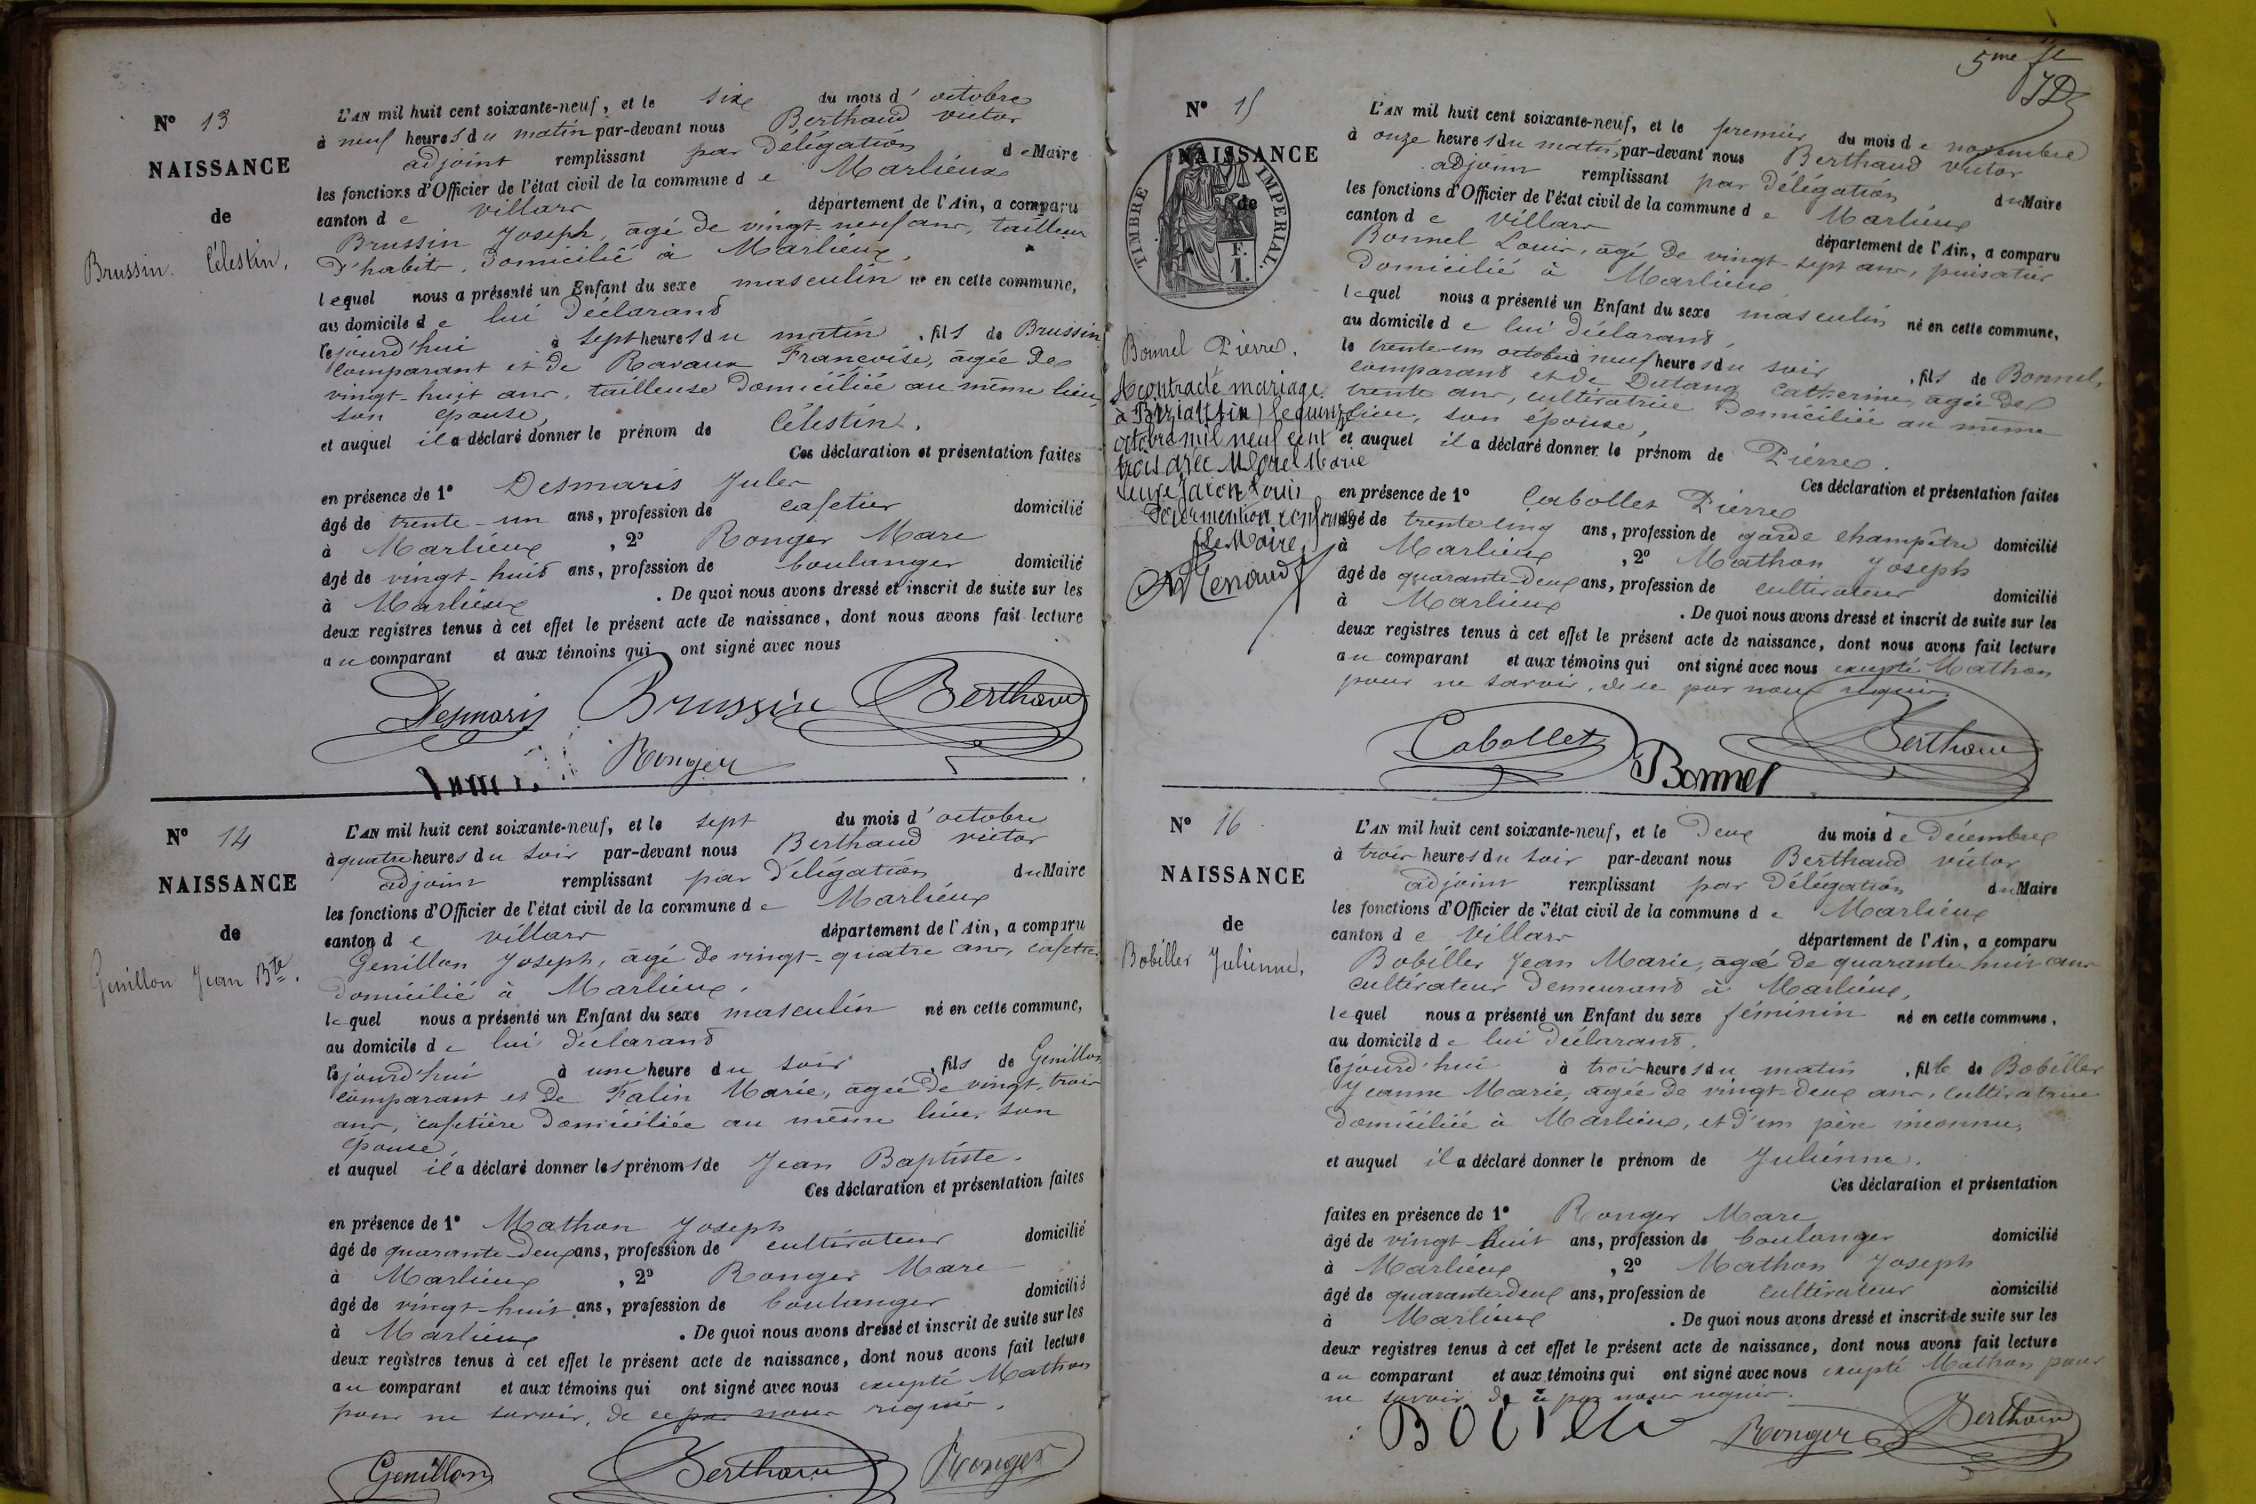 N° 13
NAISSANCE
de
Brussin Célestin.
L'AN mil huit cent soixante-neuf, et le six du mois d'octobre
à neuf heures du matin par-devant nous Berthaud victor
adjoint remplissant par délégation de Maire
les fonctions d'Officier de l'état civil de la commune de Marlieux
canton de villars département de l'Ain, a comparu
Brussin Joseph, agé de vingt-neuf ans, tailleur
d'habits, domicilié à Marlieux,
lequel nous a présenté un Enfant du sexe masculin né en cette commune,
au domicile de lui déclarant
le jourd'hui à sept heures du matin, fils de Brussin
comparant et de Ravaux Françoise, agée de
vingt-huit ans, tailleuse domiciliée au même lieu,
son épouse,
et auquel il a déclaré donner le prénom de Célestin.
Ces déclaration et présentation faites
en présence de 1° Desmaris Jules
âgé de trente-un ans, profession de cafetier domicilié
à Marlieux, 2° Ronger Marc
âgé de vingt-huit ans, profession de boulanger domicilié
à Marlieux. De quoi nous avons dressé et inscrit de suite sur les
deux registres tenus à cet effet le présent acte de naissance, dont nous avons fait lecture
au comparant et aux témoins qui ont signé avec nous
Desmaris Brussin Berthaud
Ronger
N° 14
NAISSANCE
de
Genillon Jean Bte.
L'AN mil huit cent soixante-neuf, et le sept du mois d'octobre
à quatre heures du soir par-devant nous Berthaud victor
adjoint remplissant par délégation du Maire
les fonctions d'Officier de l'état civil de la commune de Marlieux
canton de villars département de l'Ain, a comparu
Genillon Joseph, agé de vingt-quatre ans, cafetier
domicilié à Marlieux,
lequel nous a présenté un Enfant du sexe masculin né en cette commune,
au domicile de lui déclarant
le jourd'hui à une heure du soir, fils de Genillon
comparant et de Falin Marie, agée de vingt-trois
ans, cafetière domiciliée au même lieu, son
épouse,
et auquel il a déclaré donner les prénoms de Jean Baptiste.
Ces déclaration et présentation faites
en présence de 1° Mathon Joseph
âgé de quarante-deux ans, profession de cultivateur domicilié
à Marlieux, 2° Ronger Marc
âgé de vingt-huit ans, profession de boulanger domicilié
à Marlieux. De quoi nous avons dressé et inscrit de suite sur les
deux registres tenus à cet effet le présent acte de naissance, dont nous avons fait lecture
au comparant et aux témoins qui ont signé avec nous excepté Mathon
pour ne savoir, de ce par nous requis.
Genillon Berthaud Ronger
5me
N° 15
NAISSANCE
de
TIMBRE IMPERIAL.
F. 1.
Bonnel Pierre.
A contracté mariage
à (Ain) le quinze
octobre mil neuf cent
trois avec Morel Marie
veuve Jacon Louis
Pour mention conforme
Le Maire,
Renaud
L'AN mil huit cent soixante-neuf, et le premier du mois de novembre
à onze heures du matin, par-devant nous Berthaud victor
adjoint remplissant par délégation du Maire
les fonctions d'Officier de l'état civil de la commune de Marlieux
canton de villars département de l'Ain, a comparu
Bonnel Louis, agé de vingt-sept ans, puisatier
domicilié à Marlieux
lequel nous a présenté un Enfant du sexe masculin né en cette commune,
au domicile de lui déclarant,
le trente-un octobre à neuf heures du soir, fils de Bonnel,
comparant et de Dutang Catherine, agée de
trente ans, cultivatrice domiciliée au même
lieu, son épouse,
et auquel il a déclaré donner le prénom de Pierre.
Ces déclaration et présentation faites
en présence de 1° Cabollet Pierre
âgé de trente cinq ans, profession de garde champêtre domicilié
à Marlieux, 2° Mathon Joseph
âgé de quarante-deux ans, profession de cultivateur domicilié
à Marlieux. De quoi nous avons dressé et inscrit de suite sur les
deux registres tenus à cet effet le présent acte de naissance, dont nous avons fait lecture
au comparant et aux témoins qui ont signé avec nous excepté Mathon
pour ne savoir, de ce par nous requis.
Cabollet Bonnel Berthaud
N° 16
NAISSANCE
de
Bobiller Julienne,
L'AN mil huit cent soixante-neuf, et le deux du mois de décembre
à trois heures du soir par-devant nous Berthaud victor
adjoint remplissant par délégation du Maire
les fonctions d'Officier de l'état civil de la commune de Marlieux
canton de villars département de l'Ain, a comparu
Bobiller Jean Marie, agé de quarante-huit ans
cultivateur demeurant à Marlieux,
lequel nous a présenté un Enfant du sexe féminin né en cette commune,
au domicile de lui déclarant.
le jourd'hui à trois heures du matin, fille de Bobiller
Jeanne Marie, agée de vingt-deux ans, cultivatrice
domiciliée à Marlieux, et d'un père inconnu,
et auquel il a déclaré donner le prénom de Julienne.
Ces déclaration et présentation
faites en présence de 1° Ronger Marc
âgé de vingt-huit ans, profession de boulanger domicilié
à Marlieux, 2° Mathon Joseph
âgé de quarante-deux ans, profession de cultivateur domicilié
à Marlieux. De quoi nous avons dressé et inscrit de suite sur les
deux registres tenus à cet effet le présent acte de naissance, dont nous avons fait lecture
au comparant et aux témoins qui ont signé avec nous excepté Mathon pour
ne savoir, de ce par nous requis.
Ronger Berthaud